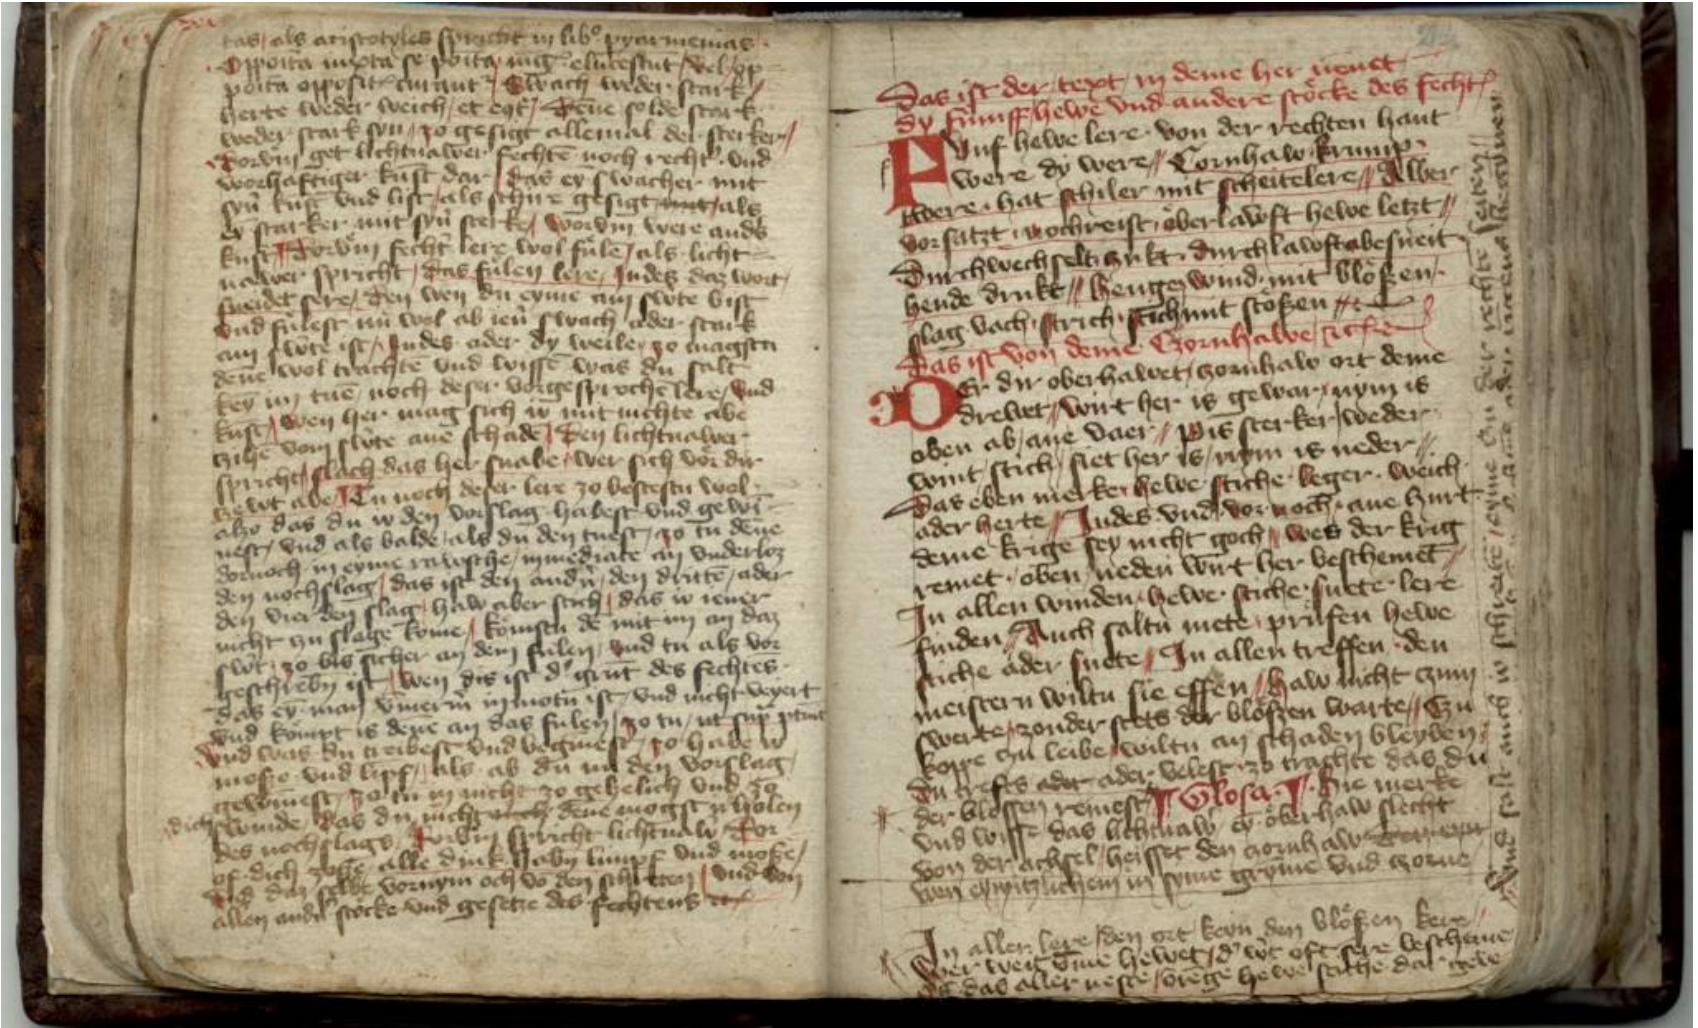 tas / als aristotyles spricht in libͦ pyarmenias
Opposita iuxta se posita mag̕ elucescunt / vel / op-
posita oppositͬ curant̕ / Swach weder stark /
herte weder weich / et eqͣ / Dene solde stark
weder stark syn / zo gesigt allemal der sterker /
Dorvm̄ get lichtnawer fechtē noch rechtˀ vnd
worhaftiger kūst dar / das eȳ swacher mit
syn̕ kūst vnd list / als schire gesigt / als
eȳ starker mit syn̕ sterke / worvm̄ were ands
kūst / Dorvm̄ fecht̕ lere wol fulē / als licht-
nawer spricht / das fulen lere / Indes daz wort /
sneidet sere / Den wen du eyme am̄ sw̕te bist
vnd fulest nu wol ab ien̕ swach / ader stark
am sw̕te ist / Indes ader dy weile / zo magstu
dēne wol trachtē vnd wissē was du salt
keȳ im tuē / noch deser vorgesprochē lere / vnd
kūst / wen her mag sich io mit nichte abe
czihē vom sw̕te ane schadē / Den lichtnawer
spricht / slach das her snabe / wer sich vor dir
zewt abe / Tu noch deser lere zo bestestu wol
alzo das du io den vorslag habest vnd gewi-
nest / vnd als balde / als du den tuest / zo tu dēne
dornoch in eyme rawsche / immediate an vnderloz
den nochslag / das ist den andn̕ / den drittē / ader
den vierden slag / haw aber stich / das io iener
nicht czu slage kome / kömstu dē mit im an daz
sw̕t / zo bis sicher an dem fulen / vnd tu als vor
geschrebn̄ ist / wen dis ist dˀ grūt des fechtēs
das eȳ man ūmerm̄ in motu ist / vnd nicht veyert
vnd kompt is dēne an das fulen / zo tu / ut supͣ
vnd was du treibest vnd begīnest / zo habe io
moße vnd limpf / als ab du im den vorslag /
gewīnest / zo tu in nicht zo gehelich vnd zo
dich swinde / das du nicht dēne mogst dˀholen
des nochslags / Dorvm̄ spricht lichtnaw̕ / Vor
allen dingē habn̄ limpf vnd moße /
vnd das selbe vornym och vō den schreten / vnd von
allen andn̕ stöcke vnd gesetze des fechtens etc̄
Das ist der text / in deme her nēnet
dy fūmff hewe vnd andere stöcke des fechtˀ
Fvnf hewe lere · von der rechten hant
were dy were // Czornhaw · krump ·
twere · hat schiler mit scheitelere // Alber
vorsatzt · nochreist · öberlawft hewe letzt //
Durchwechselt · czukt · durchlawft · abesneit
hende drukt // henge wind · mit blößen ·
slag vach · strich · stich mit stößen //
Das ist von deme Czornhawe / etc̄
Der dir oberhawet / czornhaw ort deme
drewet // wirt her is gewar / nym is
oben ab / ane vaer // Bis sterker / weder
wint / stich / siet her is / nym is neder //
Das eben merke / hewe · stiche · leger · weich
ader herte // Indes vnd / vor noch / ane hurt
deme krige sey nicht goch // wes der krig
remet · oben / neden wirt her beschemet //
In allen winden / hewe · stiche · snete · lere
finden // Auch saltu mete prüfen hewe
stiche ader snete / In allen treffen · den
meistern wiltu sie effen // haw nicht czum
swerte / zonder stets der blößen warte // Czu
koppe czu leibe / wiltu an schaden bleyben ·
du trefts ader velest · zo trachte das du
der blössen remest / ¶ Glosa ¶ Hie merke
vnd wisse das lichtnaw̕ / eȳ öberhaw slecht
von der achsel / heisset den czornhaw
wen eym itzlichem in syme gryme vnd czorne
In aller lere / den ort keyn den blößen kere //
Wer weit ūme hewet / dˀ w̕t oft sere bescheme
Of das aller neste / brēge hewe stiche dar gewe